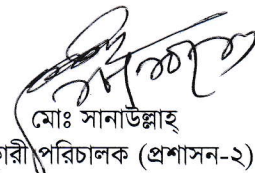 মোঃ সানাউল্লাহ্
কারী পরিচালক (প্রশাসন-২)